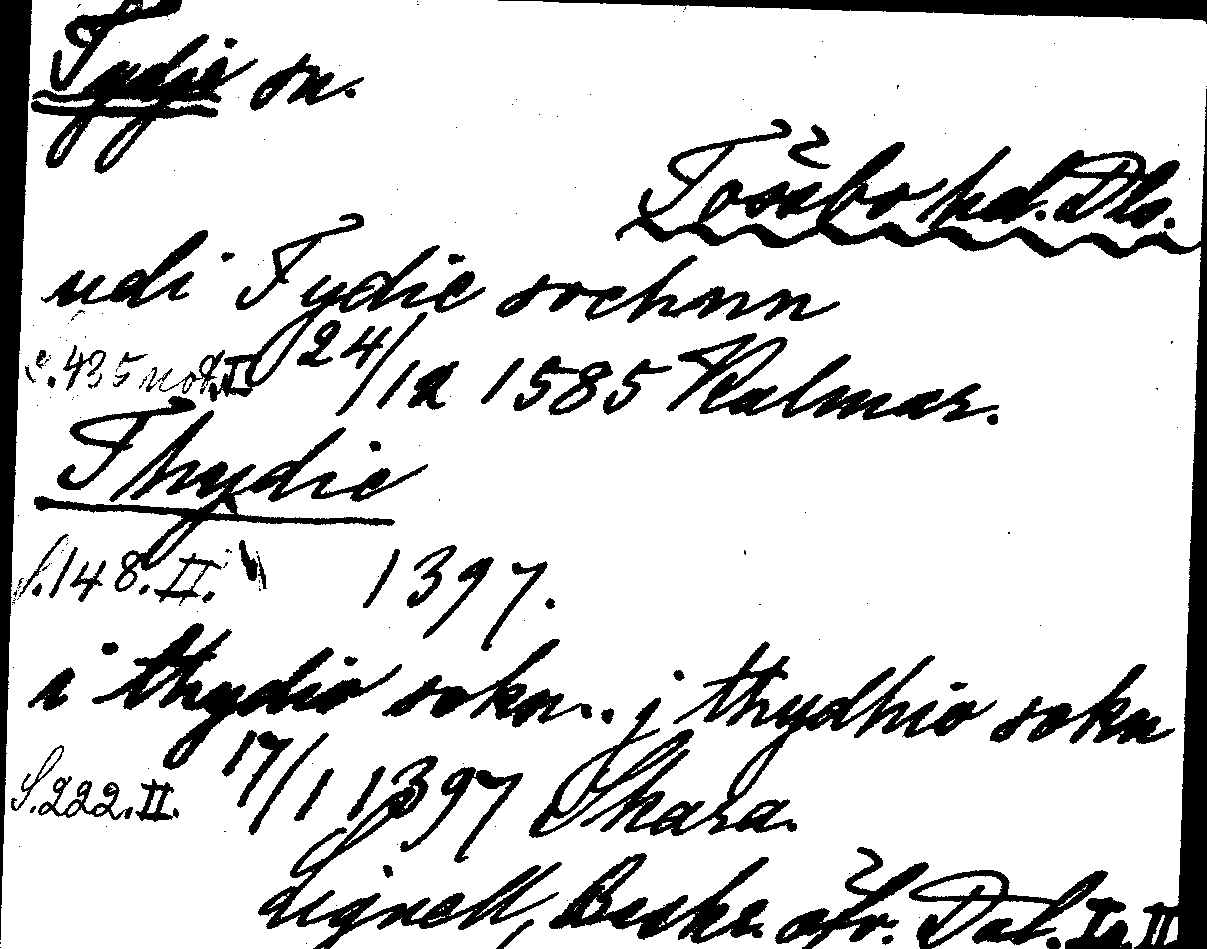 Tydje sn.
Tössbo hd. Dls.
udi Tydie sochnn
s. 435 not. I. 24/12 1585 Kalmar.
Thydie
S. 148. II. 1397.
i thydio sokn.. j thydhio sokn
S. 222. II. 17/1 1397 Skara.
Lignell, Beskr. öfv. Dal. I o. II